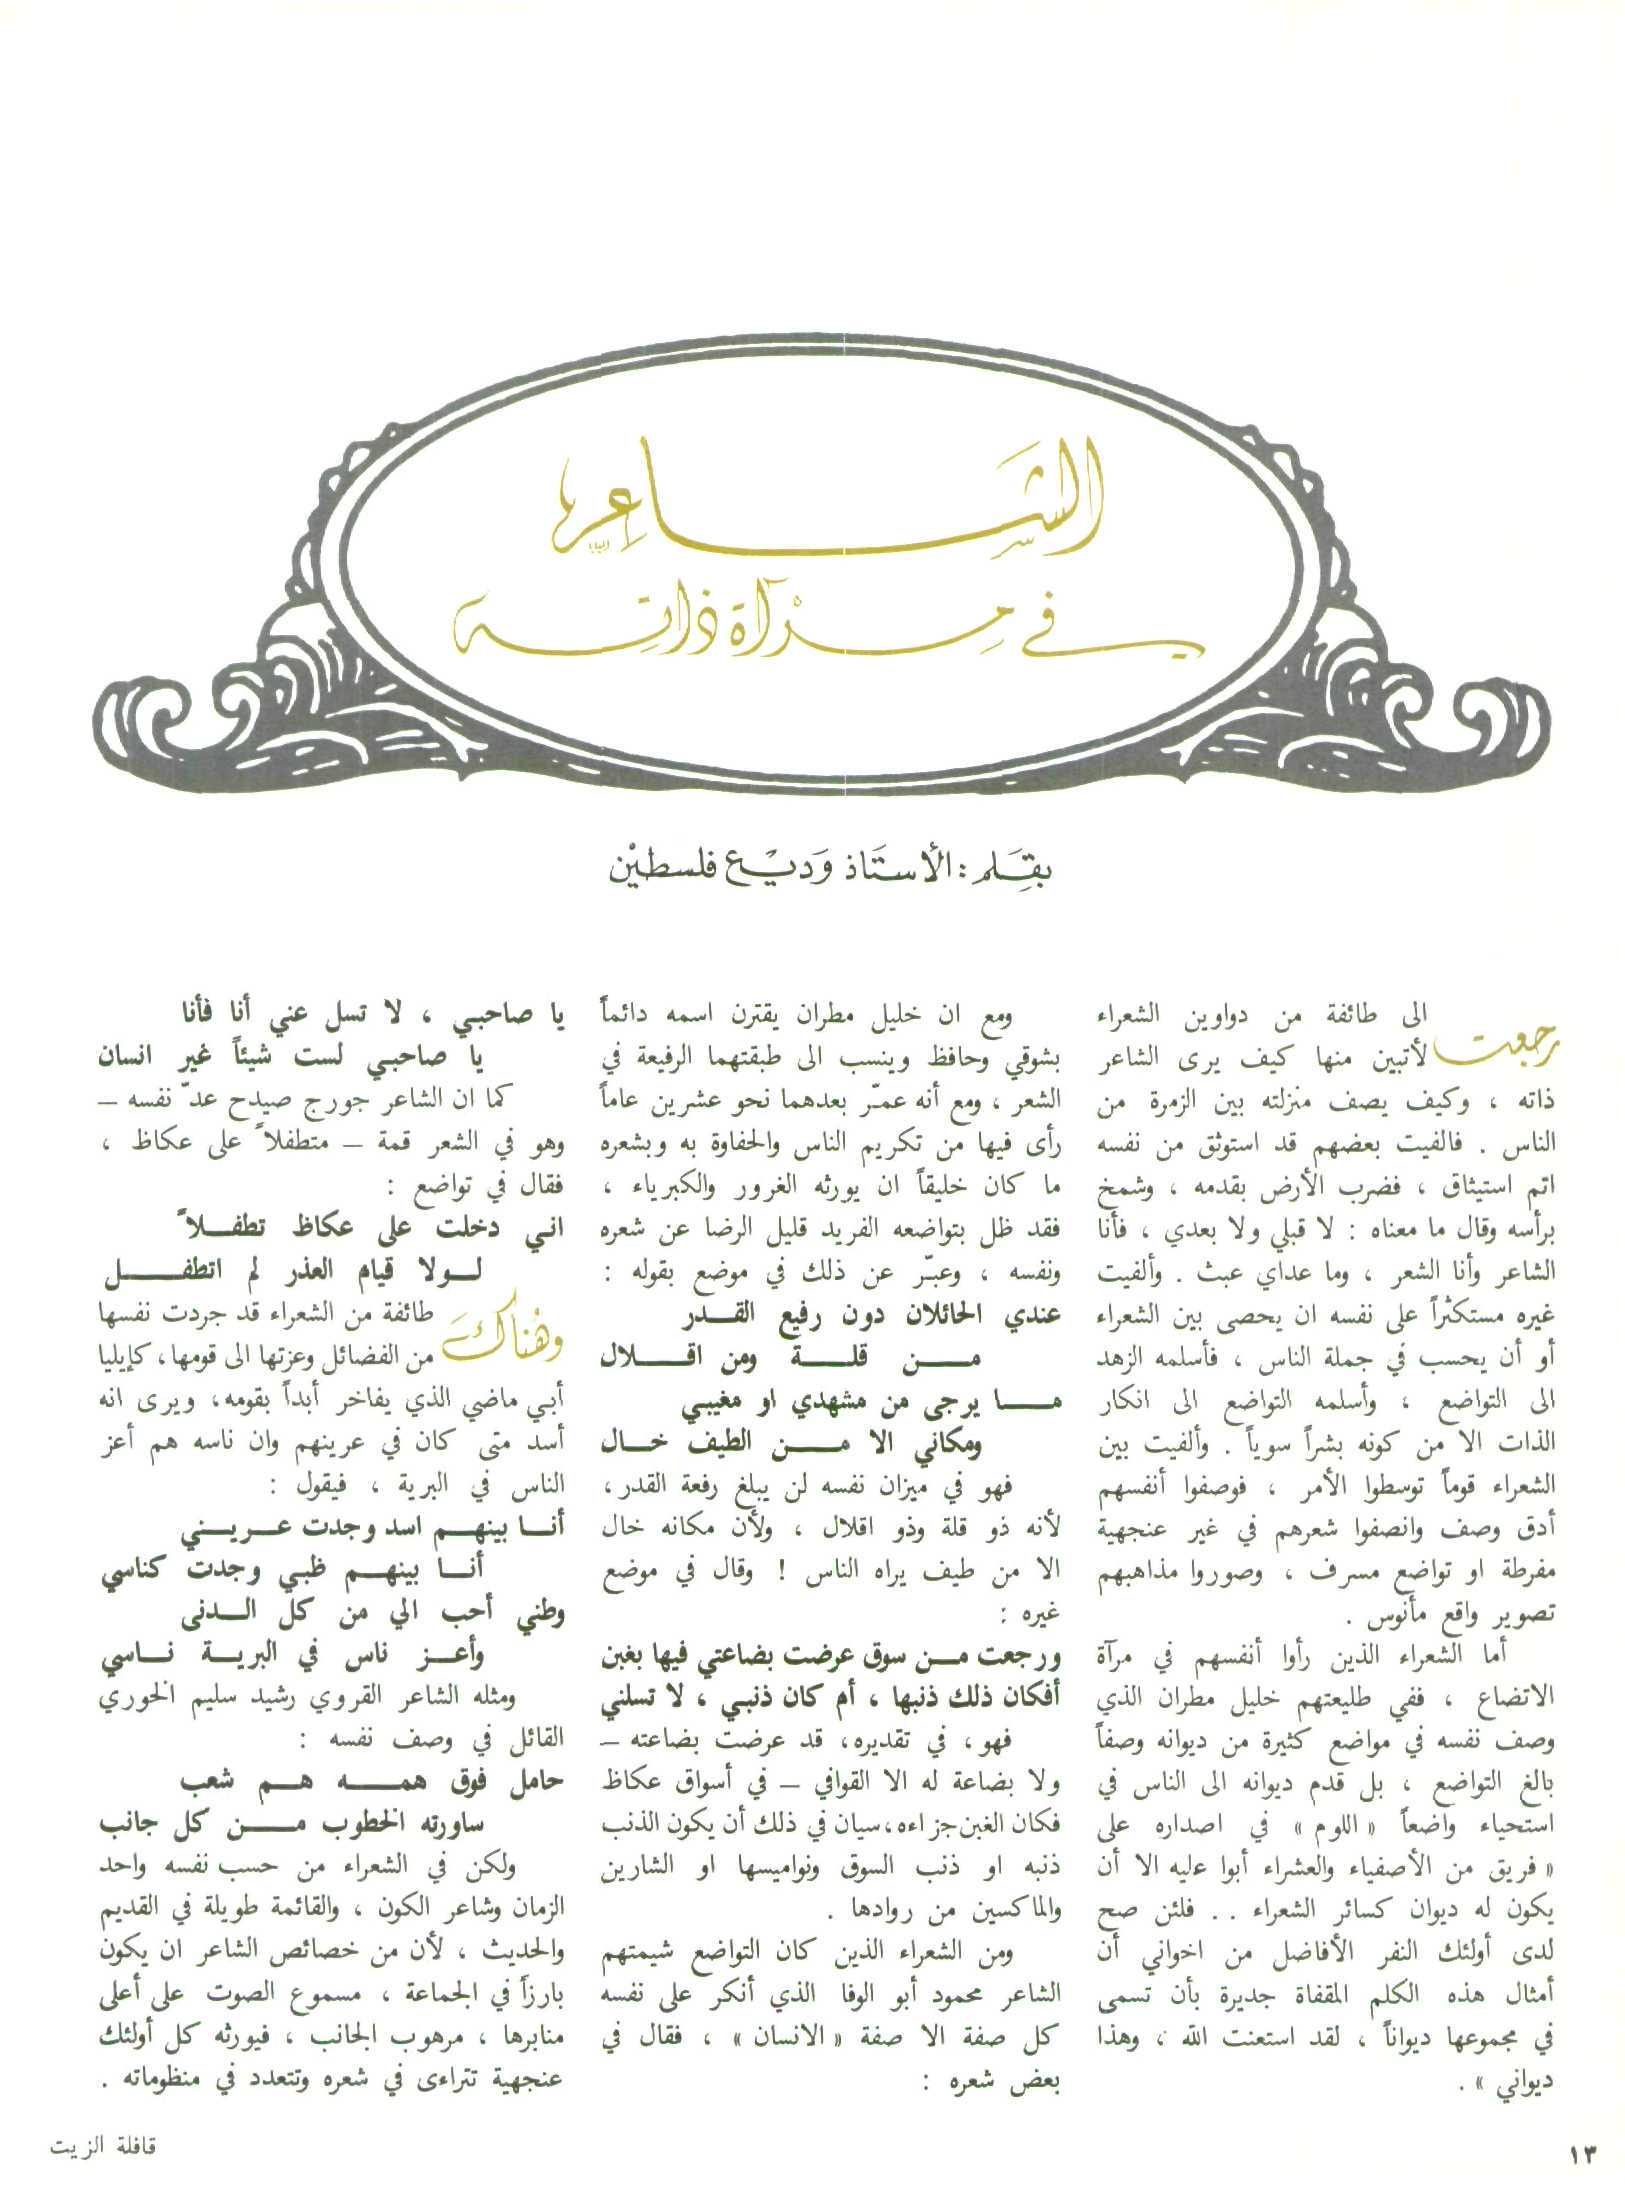 الشاعر
في مرآة ذاته
بقلم : الأستاذ وديع فلسطين
رجعت الى طائفة من دواوين الشعراء
لأتبين منها كيف يرى الشاعر
ذاته ، وكيف يصف منزلته بين الزمرة من
الناس . فالفيت بعضهم قد استوثق من نفسه
اتم استيثاق ، فضرب الأرض بقدمه ، وشمخ
برأسه وقال ما معناه : لا قبلي ولا بعدي ، فأنا
الشاعر وأنا الشعر ، وما عداي عبث . وألفيت
غيره مستكثراً على نفسه ان يحصى بين الشعراء
أو أن يحسب في جملة الناس ، فأسلمه الزهد
الى التواضع ، وأسلمه التواضع الى انكار
الذات الا من كونه بشراً سوياً . وألفيت بين
الشعراء قوماً توسطوا الأمر ، فوصفوا أنفسهم
أدق وصف وانصفوا شعرهم في غير عنجهية
مفرطة او تواضع مسرف ، وصوروا مذاهبهم
تصوير واقع مأنوس .
أما الشعراء الذين رأوا أنفسهم في مرآة
الاتضاع ، ففي طليعتهم خليل مطران الذي
وصف نفسه في مواضع كثيرة من ديوانه وصفاً
بالغ التواضع ، بل قدم ديوانه الى الناس في
استحياء واضعاً « اللوم » في اصداره على
« فريق من الأصفياء والعشراء أبوا عليه الا أن
يكون له ديوان كسائر الشعراء .. فلئن صح
لدى أولئك النفر الأفاضل من اخواني أن
أمثال هذه الكلم المقفاة جديرة بأن تسمى
في مجموعها ديواناً ، لقد استعنت الله ، وهذا
ديواني » .
ومع ان خليل مطران يقترن اسمه دائماً
بشوقي وحافظ وينسب الى طبقتهما الرفيعة في
الشعر ، ومع أنه عمّر بعدهما نحو عشرين عاماً
رأى فيها من تكريم الناس والحفاوة به وبشعره
ما كان خليقاً ان يورثه الغرور والكبرياء ،
فقد ظل بتواضعه الفريد قليل الرضا عن شعره
ونفسه ، وعبّر عن ذلك في موضع بقوله :
عندي الحائلان دون رفيع القدر
من قلة ومن اقلال
ما يرجى من مشهدي او مغيبي
ومكاني الا من الطيف خال
فهو في ميزان نفسه لن يبلغ رفعة القدر ،
لأنه ذو قلة وذو اقلال ، ولأن مكانه خال
الا من طيف يراه الناس ! وقال في موضع
غيره :
ورجعت من سوق عرضت بضاعتي فيها بغبن
أفكان ذلك ذنبها ، أم كان ذنبي ، لا تسلني
فهو ، في تقديره ، قد عرضت بضاعته –
ولا بضاعة له الا القوافي – في أسواق عكاظ
فكان الغبن جزاءه ، سيان في ذلك أن يكون الذنب
ذنبه او ذنب السوق ونواميسها او الشارين
والماكسين من روادها .
ومن الشعراء الذين كان التواضع شيمتهم
الشاعر محمود أبو الوفا الذي أنكر على نفسه
كل صفة الا صفة « الانسان » ، فقال في
بعض شعره :
يا صاحبي ، لا تسل عني أنا فأنا
يا صاحبي لست شيئاً غير انسان
كما ان الشاعر جورج صيدح عدّ نفسه –
وهو في الشعر قمة – متطفلاً على عكاظ ،
فقال في تواضع :
اني دخلت على عكاظ تطفلاً
لولا قيام العذر لم اتطفل
وهناك طائفة من الشعراء قد جردت نفسها
من الفضائل وعزتها الى قومها ، كإيليا
أبي ماضي الذي يفاخر أبداً بقومه ، ويرى انه
أسد متى كان في عرينهم وان ناسه هم أعز
الناس في البرية ، فيقول :
أنا بينهم اسد وجدت عريني
أنا بينهم ظبي وجدت كناسي
وطني أحب الي من كل الدنى
وأعز ناس في البرية ناسي
ومثله الشاعر القروي رشيد سليم الخوري
القائل في وصف نفسه :
حامل فوق همه هم شعب
ساورته الخطوب من كل جانب
ولكن في الشعراء من حسب نفسه واحد
الزمان وشاعر الكون ، والقائمة طويلة في القديم
والحديث ، لأن من خصائص الشاعر ان يكون
بارزاً في الجماعة ، مسموع الصوت على أعلى
منابرها ، مرهوب الجانب ، فيورثه كل أولئك
عنجهية تتراءى في شعره وتتعدد في منظوماته .
١٣
قافلة الزيت